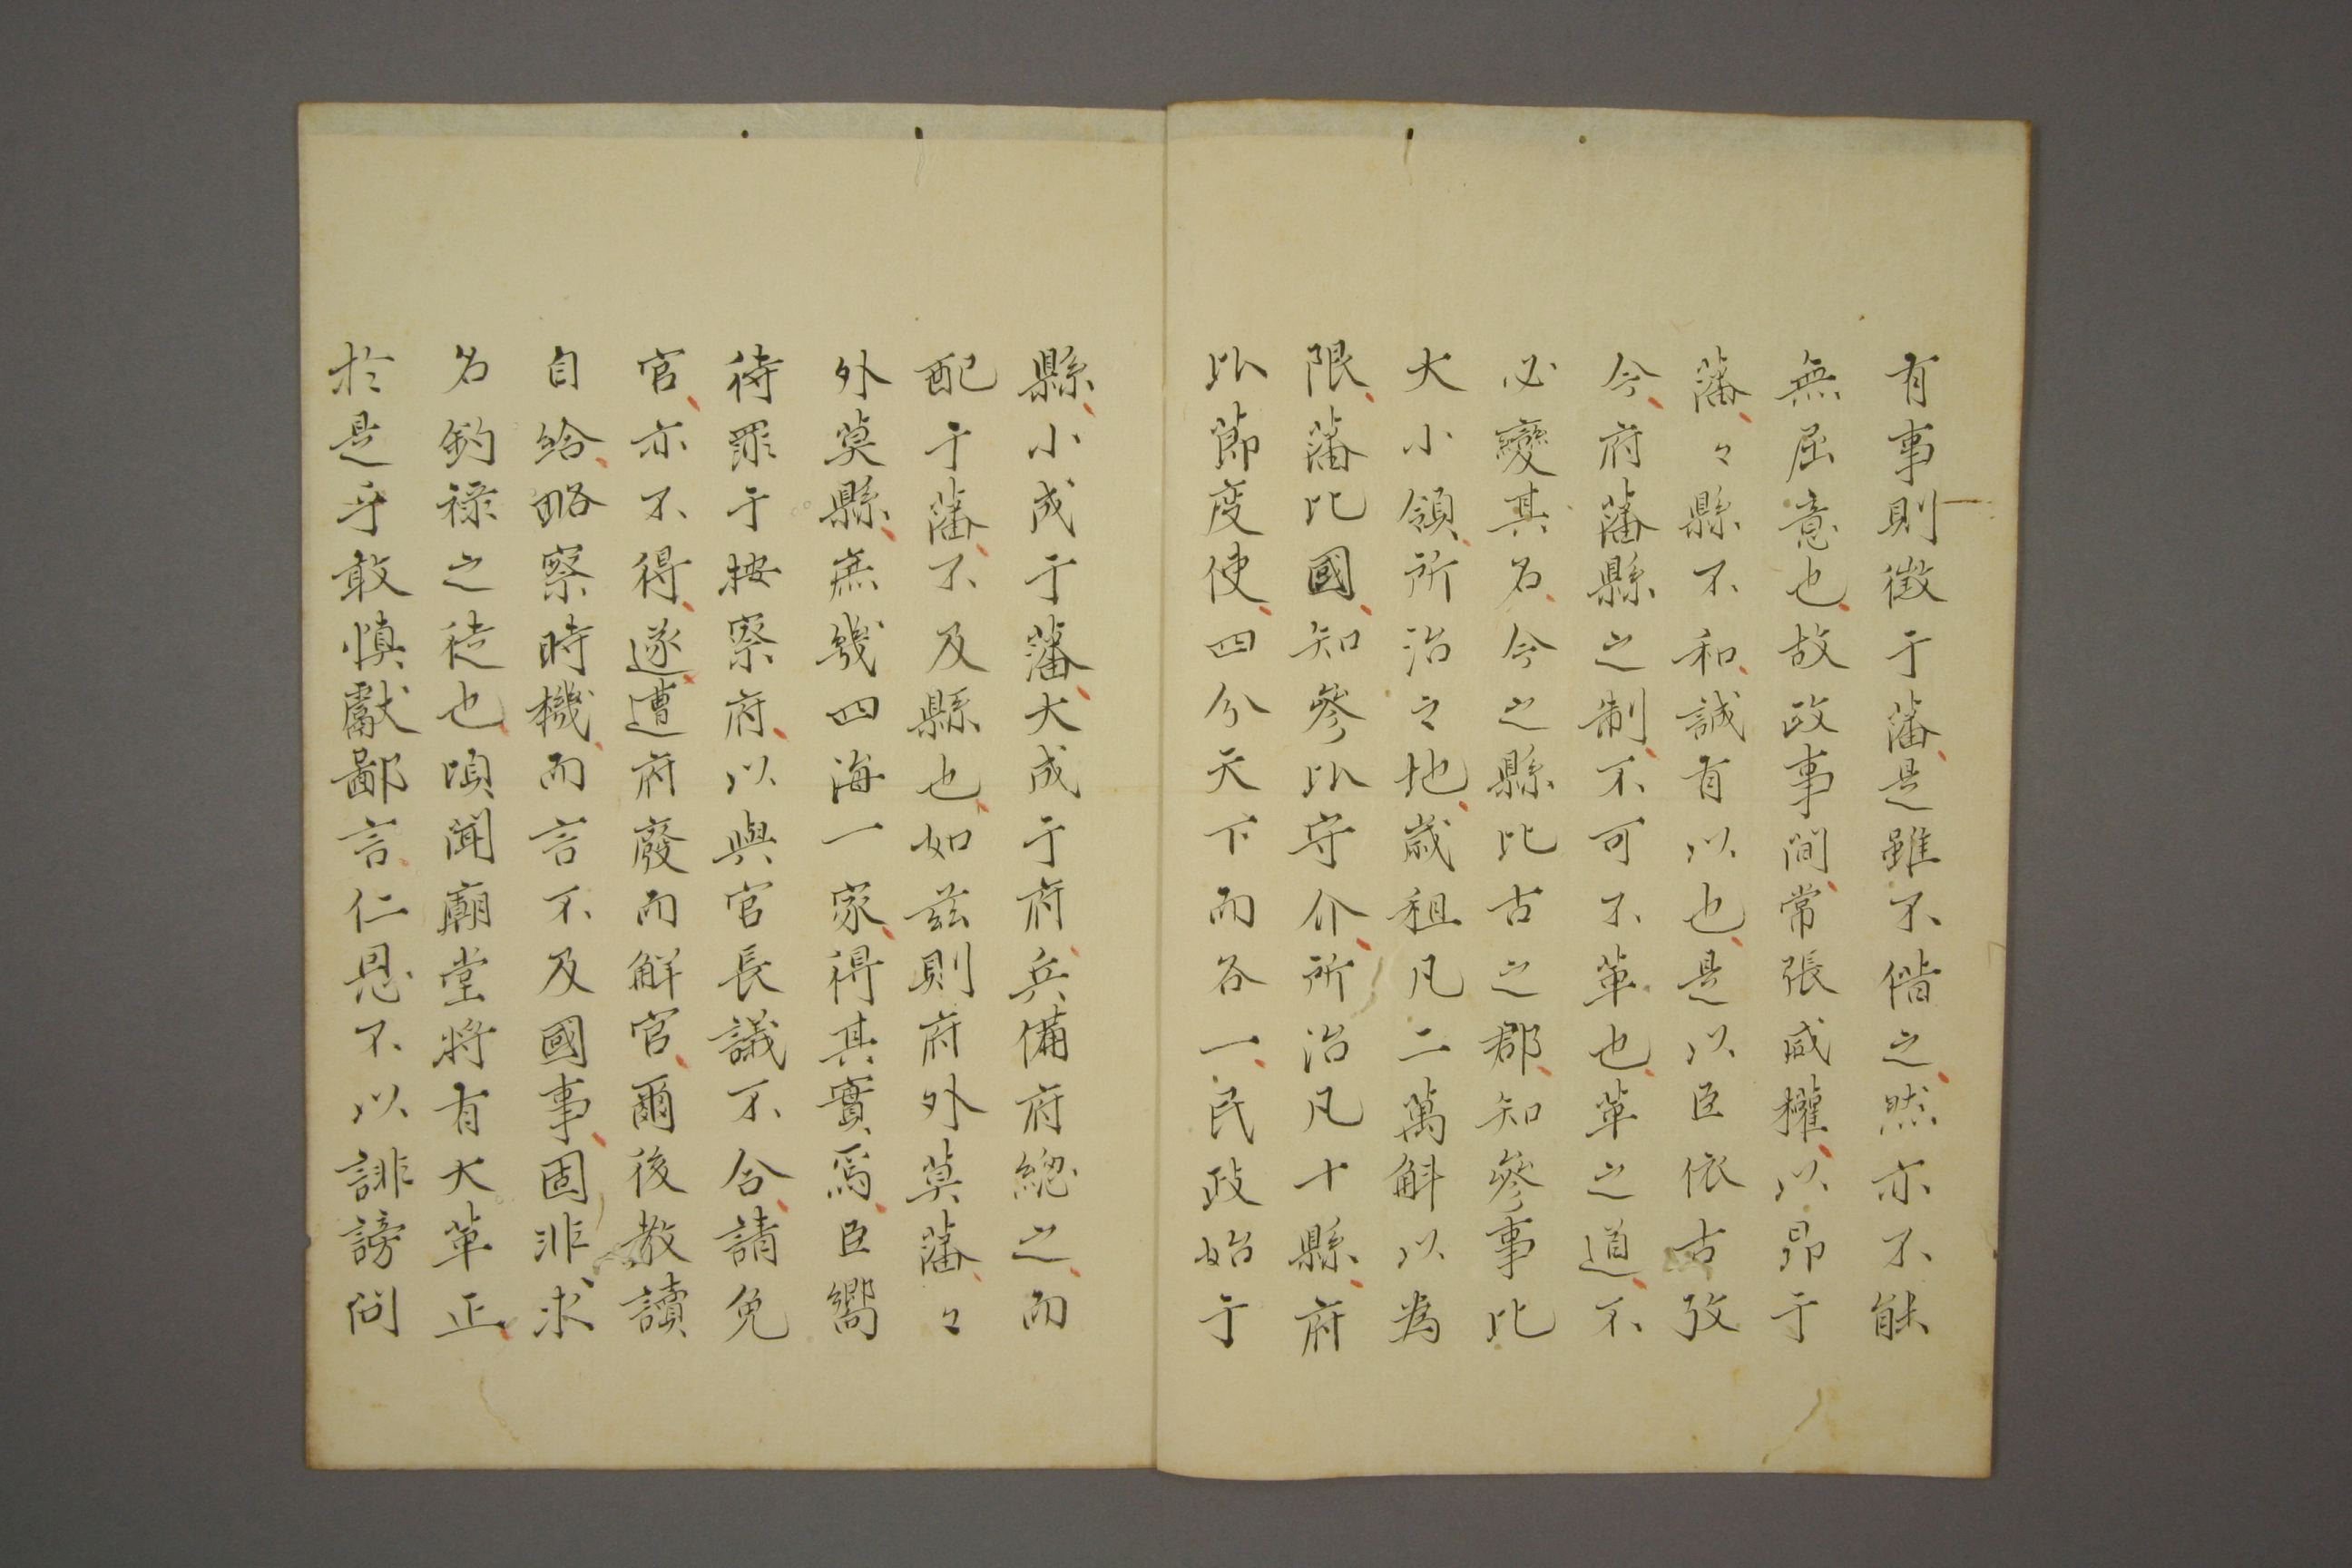 有事則徴于藩、是雖不偕之、然亦不能
無屈意也、故政事間、常張威權、以昂于
藩、々縣不和、誠有以也、是以臣依古攷
今、府藩縣之制、不可不革也、革之道、不
必變其名、今之縣比古之郡、知參事比
大小領、所治之地、歳租凡二萬斛以為
限、藩比國、知參以守介、所治凡十縣、府
以節度使、四分天下而各一、民政始于
縣、小成于藩、大成于府、兵備府總之、而
配于藩、不及縣也、如茲則府外莫藩、々
外莫縣、庶幾四海一家、得其實焉、臣嚮
待罪于按察府、以與官長議不合、請免
官、亦不得、遂遭府廢而解官、爾後教讀
自給、略察時機、而言不及國事、固非求
名釣禄之徒也、頃聞廟堂將有大革正、
於是乎敢慎獻鄙言、仁恩不以誹謗問